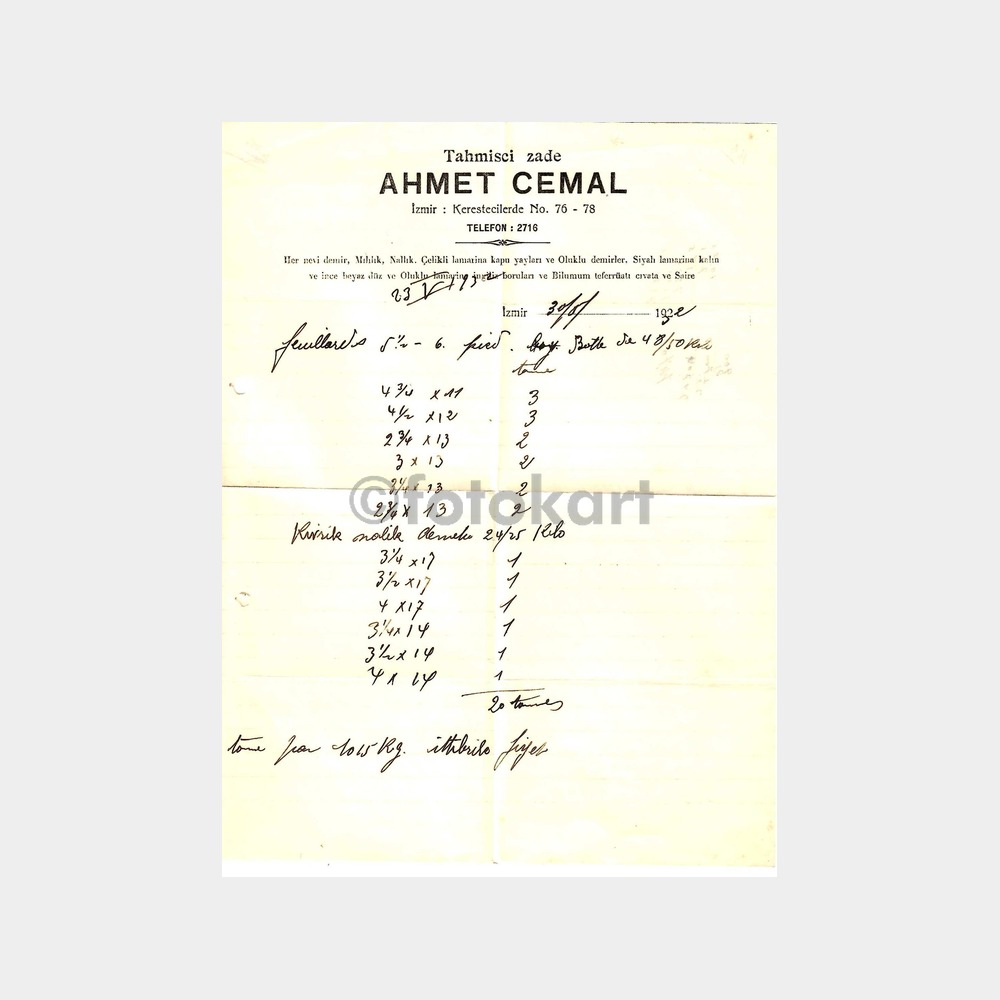 Tahmisci zade
AHMET CEMAL
İzmir : Kerestecilerde No. 76 - 78
TELEFON : 2716
Her nevi demir, Mıhlık, Nallık. Çelikli lamarina kapu yayları ve Oluklu demirler. Siyah lamarina kalın
ve ince beyaz düz ve Oluklu lamarina ingiliz boruları ve Bilumum teferrüatı cıvata ve Saire
23 V 1932
İzmir 30/5/ 1932
feuillards 5½ - 6. pied. Botte de 48/50 Kilo
tone
4 3/4 x 11 3
4½ x 12 3
2 3/4 x 13 2
3 x 13 2
x 13 2
x 13 2
nalik 24/25 Kilo
3¼ x 17 1
3½ x 17 1
4 x 17 1
3¼ x 14 1
3½ x 14 1
4 x 14 1
20 tones
tone par 1015 Kg.
©fotokart